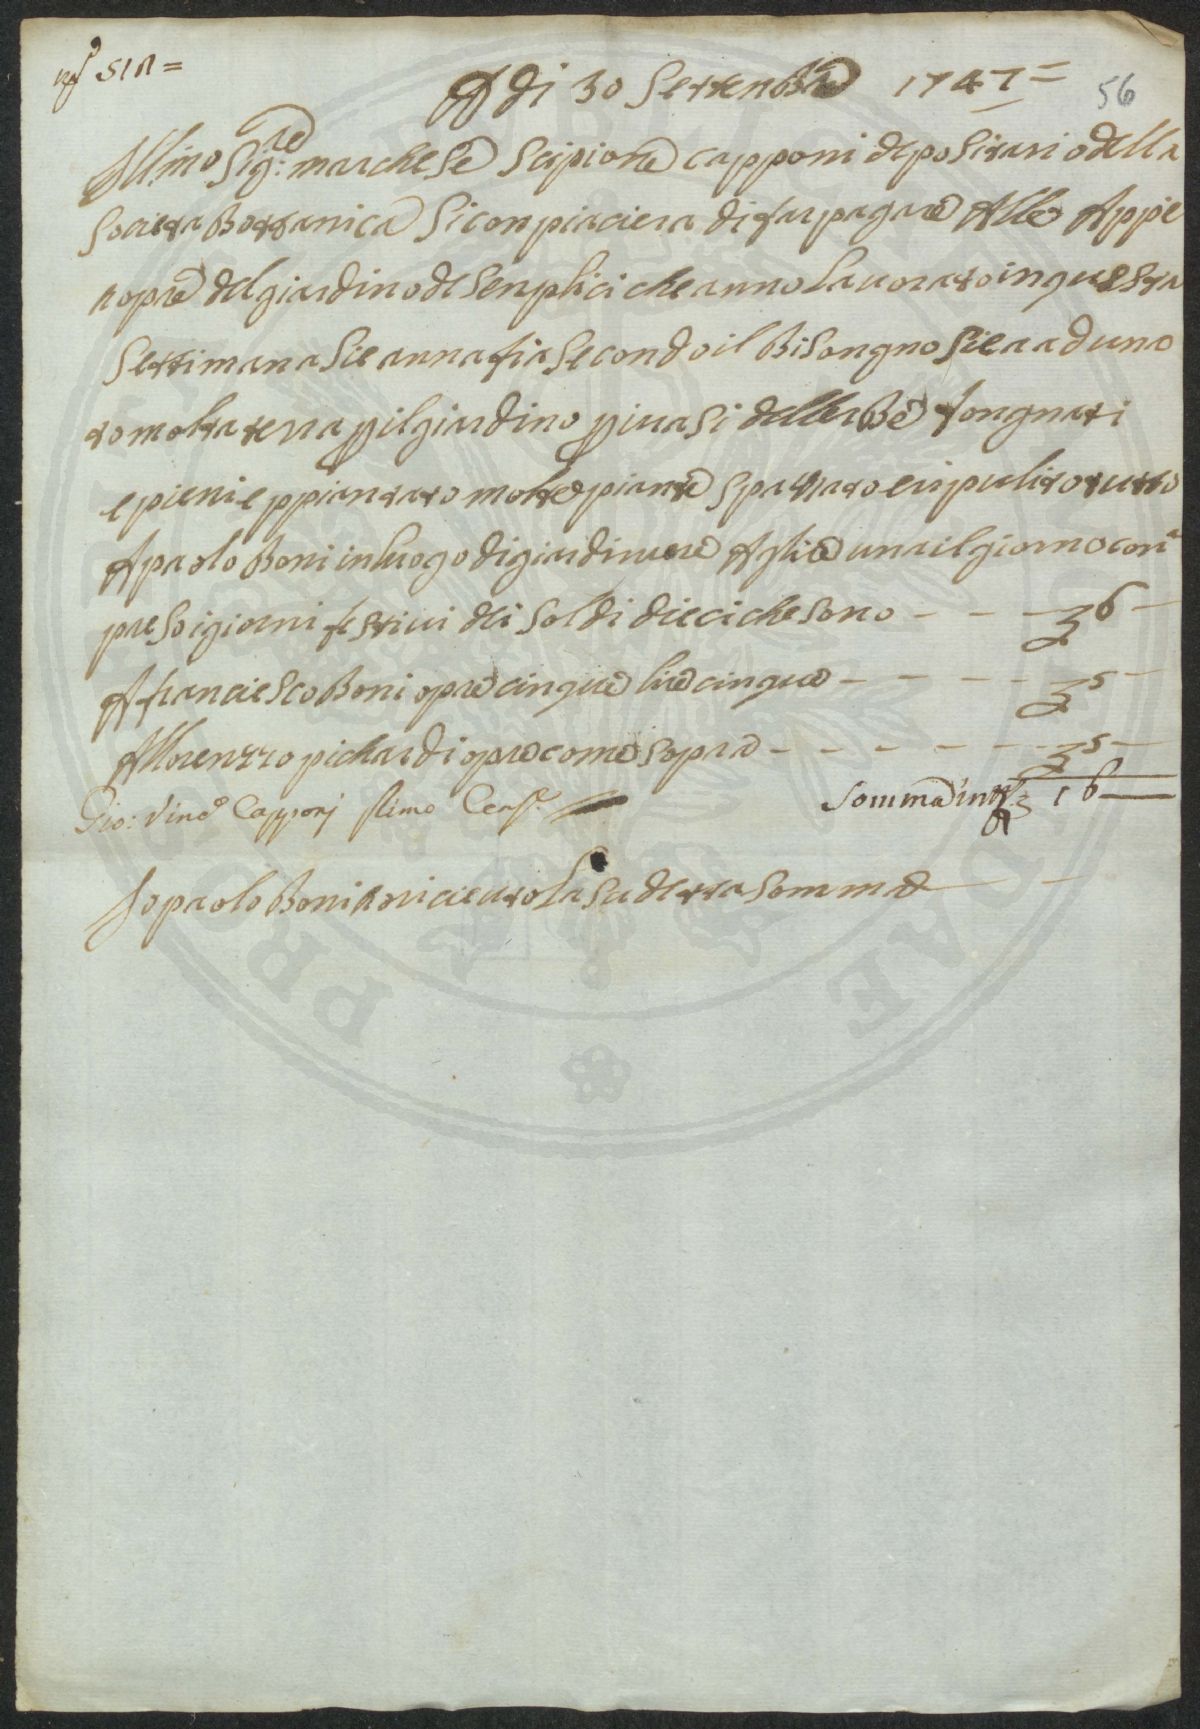 Adi 30 Settenbre 1747=
56
Ill.mo Sig:re marchese Scipione Capponi depositario della
Societa Bottanica Si conpiaciera di far pagare Alle Appie
nopre del giardino de Senplici che anno Lauorato in questa
Settimana Sie anna fia Secondo il Bisongno Sie radunno
to molta terra p il giardino p i uasi delle rbe fongnati
e pieni e ppiantato molte piante Spazzato e ripulito tutto
A paolo Boni in luogo di giardiniere A glire una il giorno con
preso i giorni festiui dei Soldi dieci che sono - - - £ 6 -
A franciesco Boni opre cinque lire cinque - - - - £ 5 -
Allorenzzo pichardi opre come sopra - - - - - £ 5 -
Gio: Vinc.o Capponj
Somma in tt £ 16 -
Io paolo Boni o riceuto La Su detta Somma
PUBLICAE
PRO